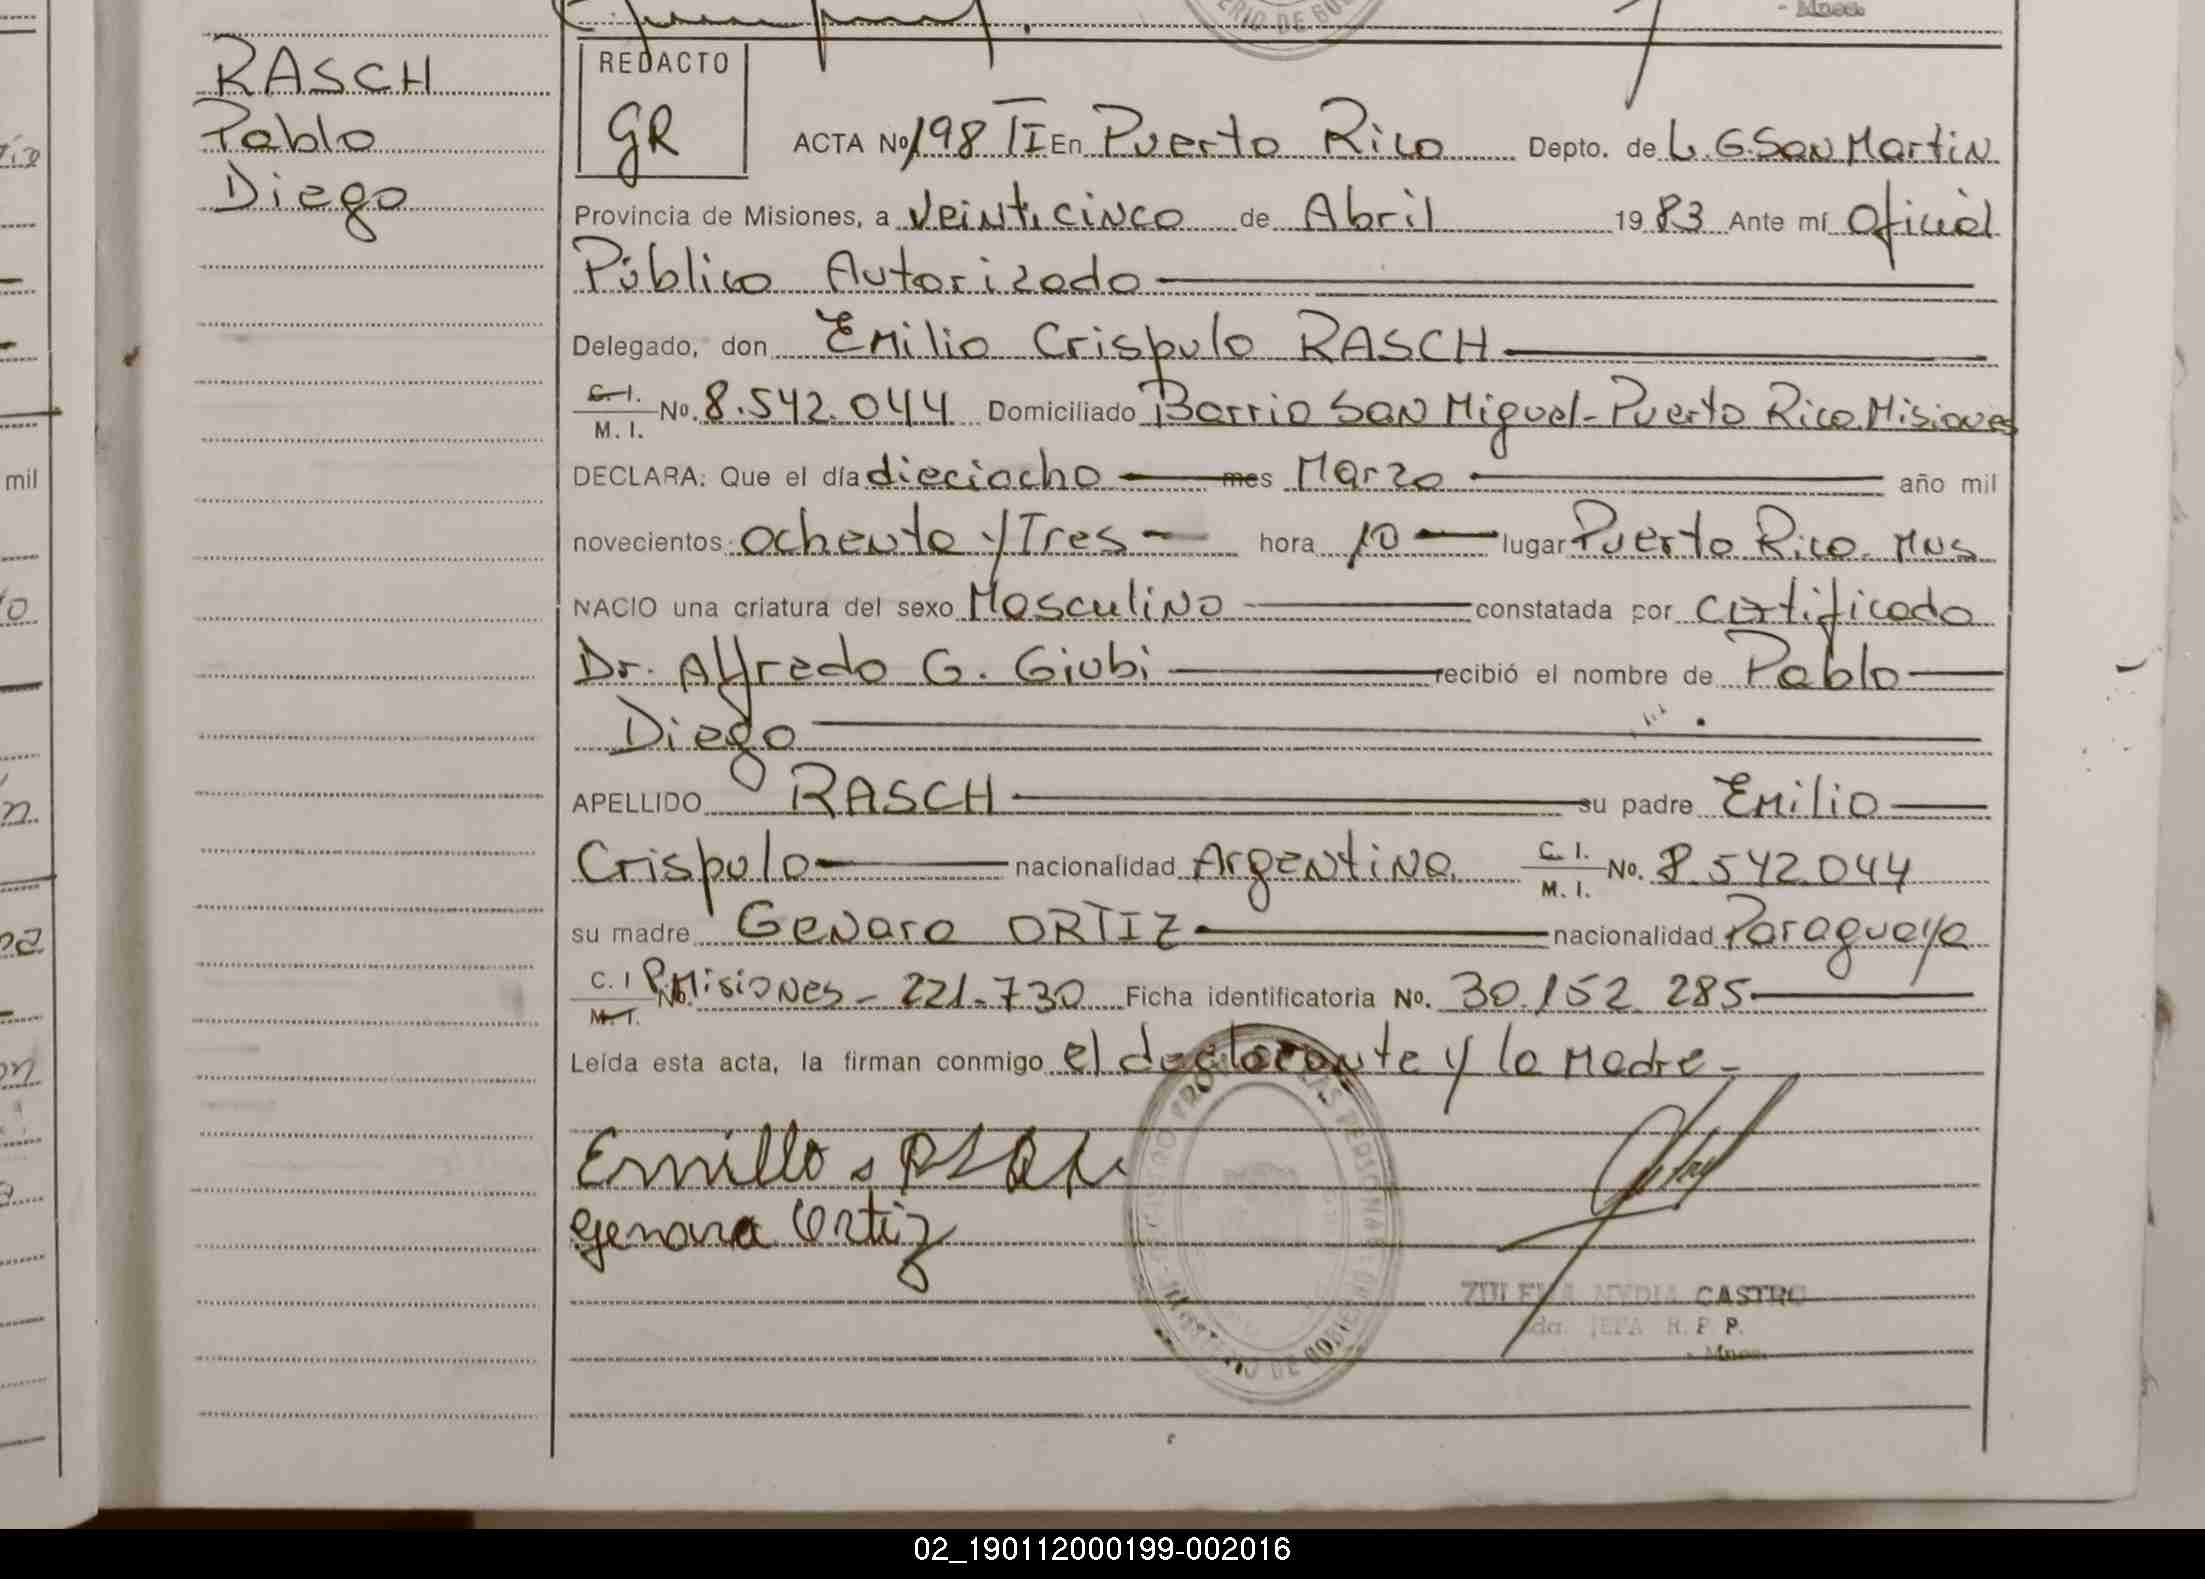 RASCH
Pablo
Diego
REDACTO
GR
ACTA Nº 198 TI En Puerto Rico Depto. de L. G. San Martin
Provincia de Misiones, a veinticinco de Abril 1983 Ante mí Oficial
Público Autorizado
Delegado, don Emilio Crispulo RASCH
C. I. M. I. No. 8.542.044 Domiciliado Barrio San Miguel-Puerto Rico. Misiones
DECLARA: Que el día dieciocho mes Marzo año mil
novecientos ochenta y Tres - hora 10 lugar Puerto Rico. Mns
NACIO una criatura del sexo Masculino constatada por certificado
Dr. Alfredo G. Giubi recibió el nombre de Pablo
Diego
APELLIDO RASCH su padre Emilio
Crispulo nacionalidad Argentina. C. I. M. I. No. 8.542.044
su madre Genara ORTIZ nacionalidad Paraguaya
C. I. M. I. No. P. Misiones - 221.730 Ficha identificatoria No. 30.152.285
Leída esta acta, la firman conmigo el declarante y la Madre -
Emillo
genara Ortiz
CASTRO
JEFA R. P. P.
- Mnes.
mil
02_190112000199-002016